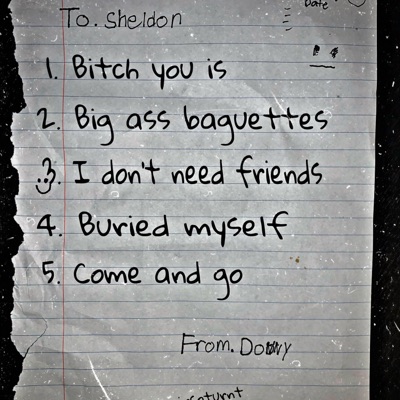 To. Sheldon
Date
1. Bitch you is
2. Big ass baguettes
3. I don't need friends
4. Buried myself
5. Come and go
From.